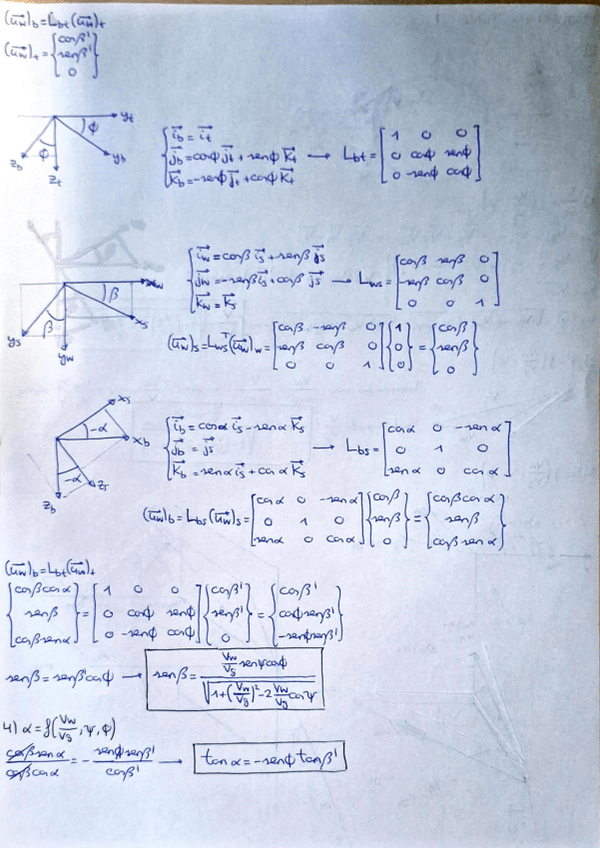 (u⃗w)b = Lbt(u⃗w)t
(u⃗w)t = {cosβ' senβ' 0}
yt
ϕ
ϕ
zb zt yb
{i⃗b = i⃗t
j⃗b = cosϕ j⃗t + senϕ k⃗t → Lbt = [1 0 0; 0 cosϕ senϕ; 0 -senϕ cosϕ]
k⃗b = -senϕ j⃗t + cosϕ k⃗t
xw
β
β
xs
ys yw
{i⃗w = cosβ i⃗s + senβ j⃗s
j⃗w = -senβ i⃗s + cosβ j⃗s → Lws = [cosβ senβ 0; -senβ cosβ 0; 0 0 1]
k⃗w = k⃗s
(u⃗w)s = Lws^T(u⃗w)w = [cosβ -senβ 0; senβ cosβ 0; 0 0 1]{1 0 0} = {cosβ senβ 0}
xs
-α
xb
-α
zs
zb
{i⃗b = cosα i⃗s - senα k⃗s
j⃗b = j⃗s → Lbs = [cosα 0 -senα; 0 1 0; senα 0 cosα]
k⃗b = senα i⃗s + cosα k⃗s
(u⃗w)b = Lbs(u⃗w)s = [cosα 0 -senα; 0 1 0; senα 0 cosα]{cosβ senβ 0} = {cosβcosα senβ cosβsenα}
(u⃗w)b = Lbt(u⃗w)t
{cosβcosα senβ cosβsenα} = [1 0 0; 0 cosϕ senϕ; 0 -senϕ cosϕ]{cosβ' senβ' 0} = {cosβ' cosϕsenβ' -senϕsenβ'}
senβ = senβ'cosϕ → senβ = (Vw/Vg senψcosϕ)/√(1+(Vw/Vg)²-2Vw/Vg cosψ)
4) α = f(Vw/Vg, ψ, ϕ)
cosβsenα/cosβcosα = -senϕsenβ'/cosβ' → tanα = -senϕ tanβ'